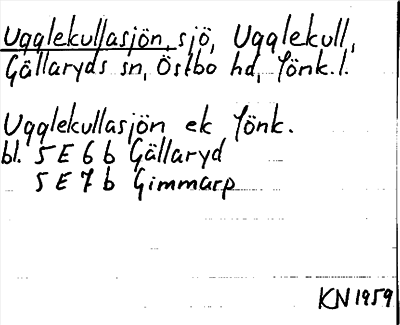 Ugglekullasjön, sjö, Ugglekull,
Gällaryds sn, Östbo hd, Jönk. l.
Ugglekullasjön ek Jönk.
bl. 5 E 6 b Gällaryd
5 E 7 b Gimmarp
KN 1959